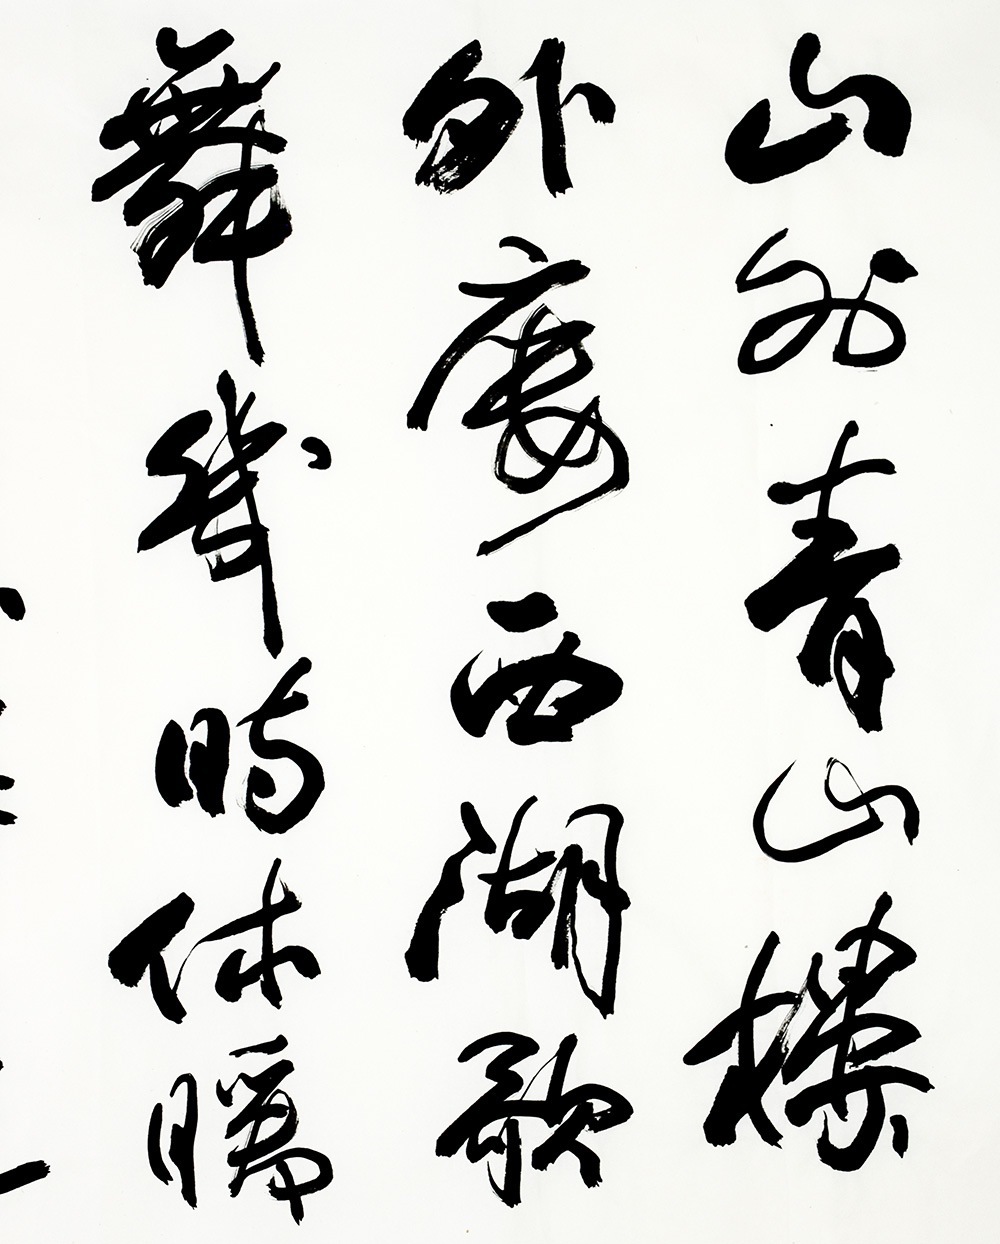 山外青山樓
外廔西湖歌
舞幾時休暖